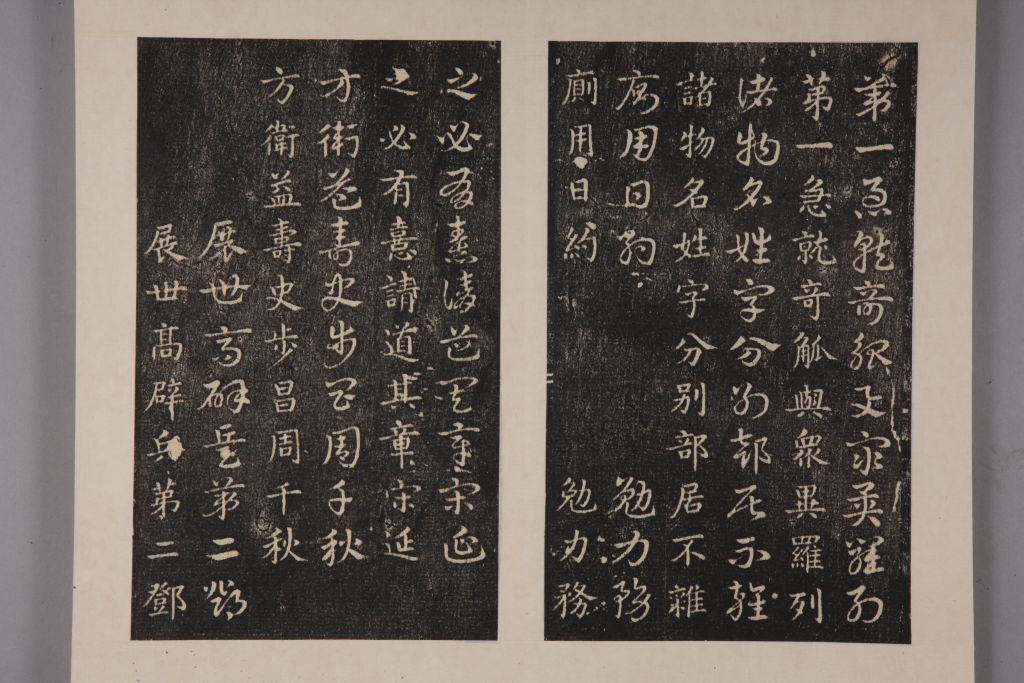 第一急就奇觚與衆異羅列
第一急就奇觚與衆異羅列
諸物名姓字分別部居不雜
諸物名姓字分別部居不雜
廁用日約 勉力務
廁用日約 勉力務
之必有憙請道其章宋延
之必有憙請道其章宋延
方衛益壽史步昌周千秋
方衛益壽史步昌周千秋
展世高辟兵第二鄧
展世高辟兵第二鄧